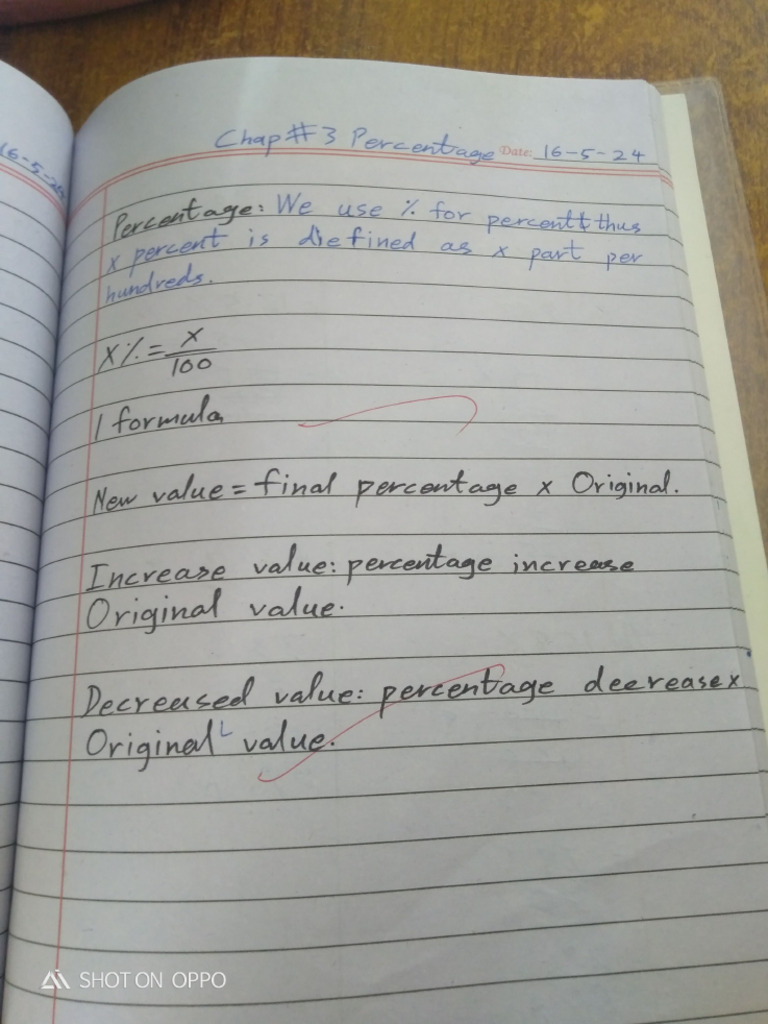 16-5-24
Chap #3 Percentage Date: 16-5-24
Percentage: We use % for percent & thus
x percent is defined as x part per
hundreds.
X% = x/100
1 formula
New value = final percentage x Original.
Increase value: percentage increase
Original value.
Decreased value: percentage decrease x
Original value.
SHOT ON OPPO